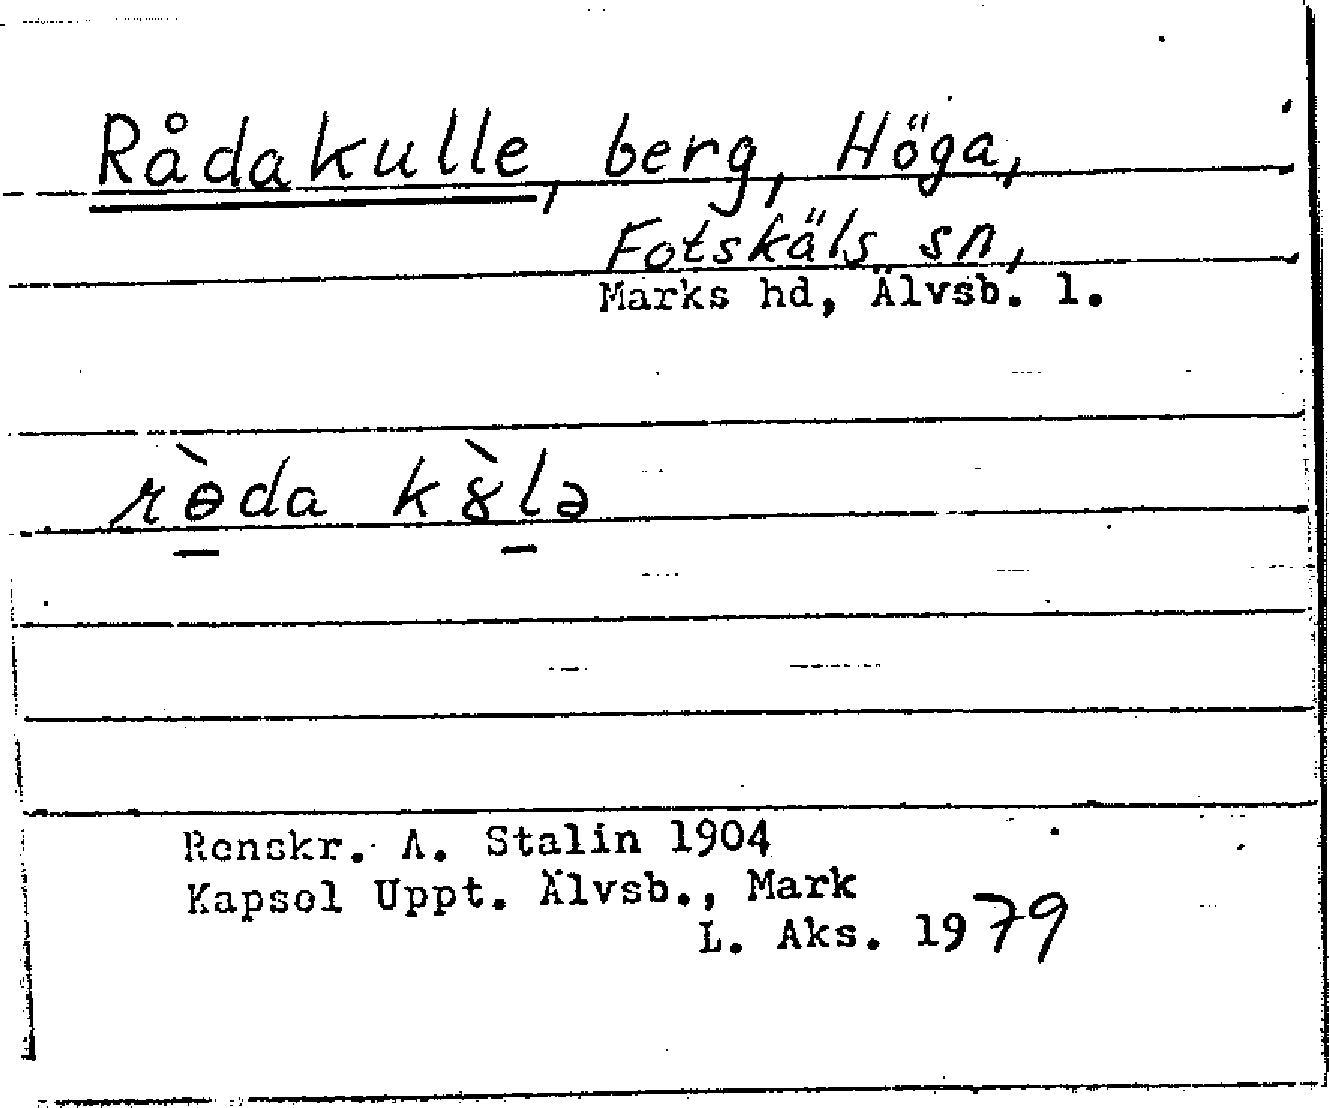 Rådakulle, berg, Höga,
Fotskäls sn,
Marks hd, Älvsb. l.
rɵ̀da kȣ̀lə
Renskr. A. Stalin 1904
Kapsol Uppt. Älvsb., Mark
L. Aks. 1979